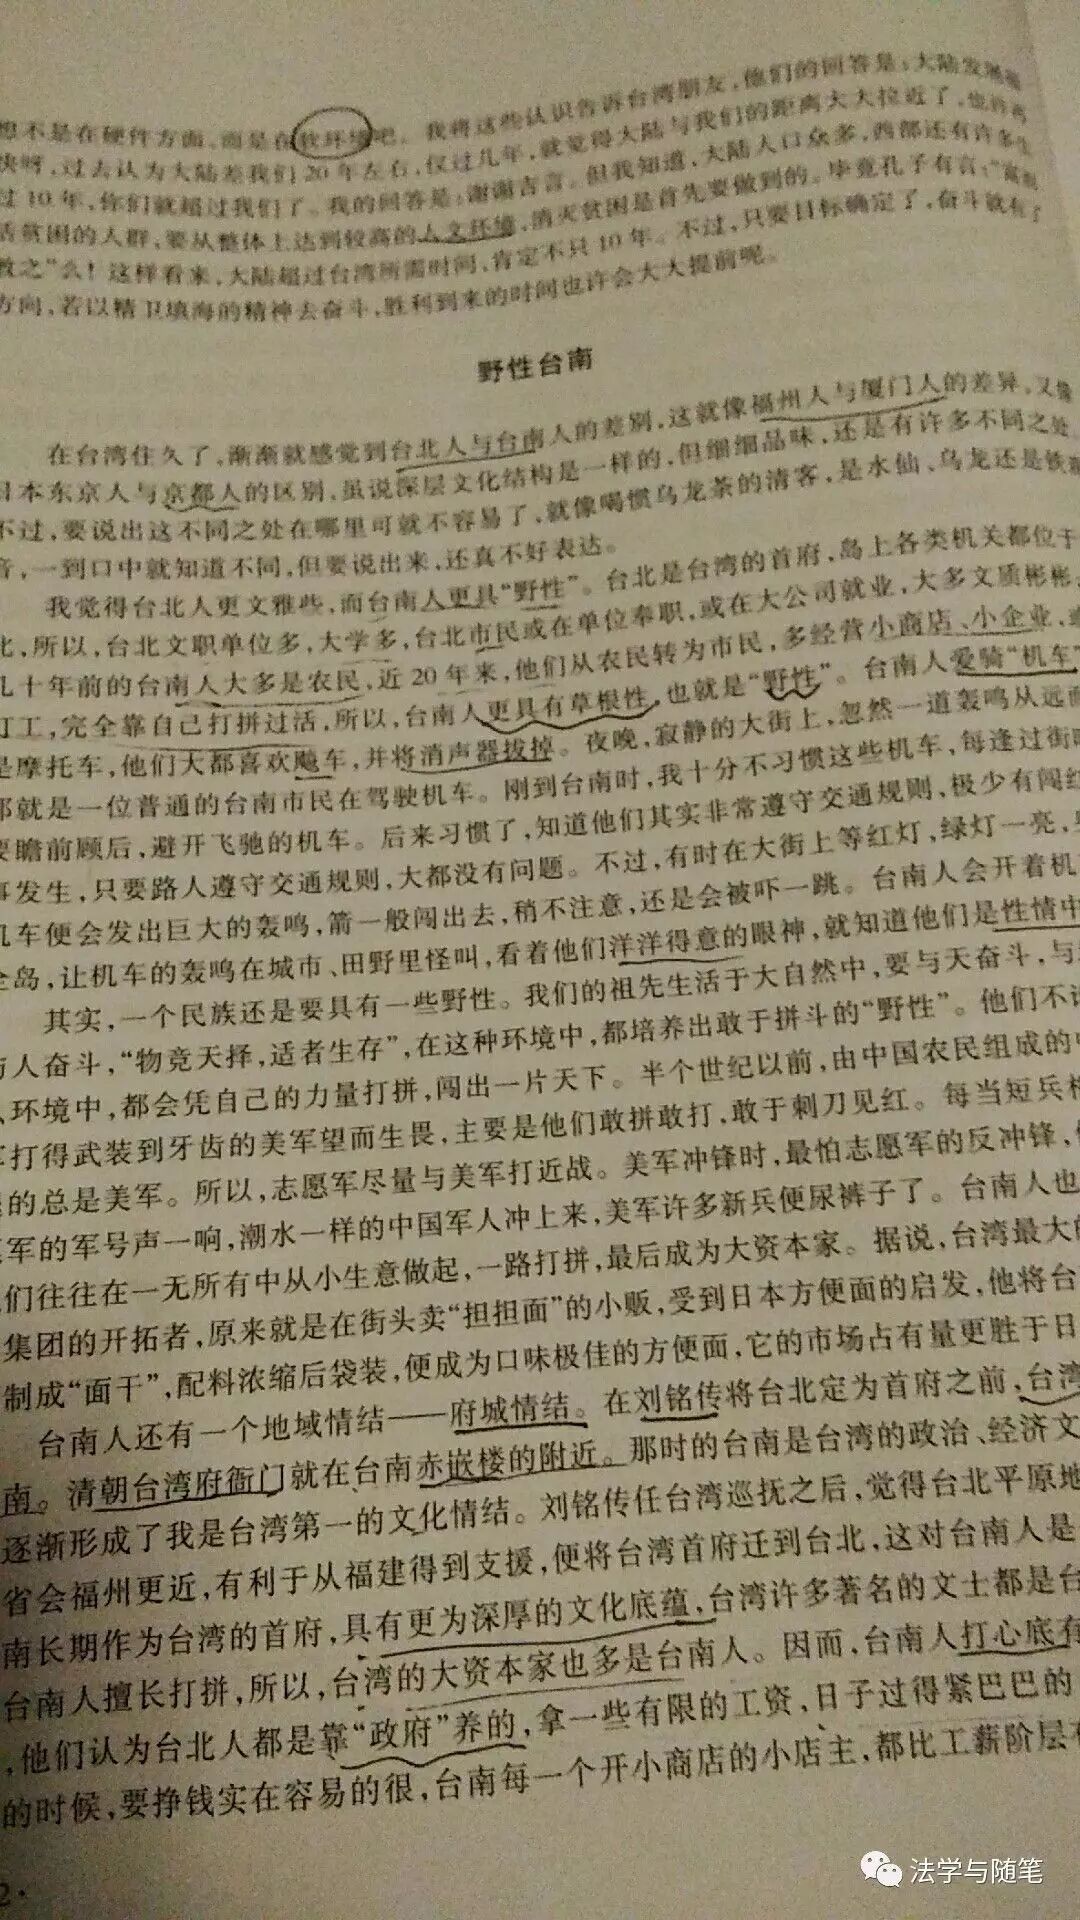 想不是在硬件方面,而是在软环境吧。我将这些认识告诉台湾朋友,他们的回答是:大陆发展
快呀,过去认为大陆差我们20年左右,仅过几年,就觉得大陆与我们的距离大大拉近了,也许再
过10年,你们就超过我们了。我的回答是:谢谢吉言。但我知道,大陆人口众多,西部还有许多生
活贫困的人群,要从整体上达到较高的人文环境,消灭贫困是首先要做到的。毕竟孔子有言:“富而
教之”么!这样看来,大陆超过台湾所需时间,肯定不只10年。不过,只要目标确定了,奋斗就有了
方向,若以精卫填海的精神去奋斗,胜利到来的时间也许会大大提前呢。
野性台南
在台湾住久了,渐渐就感觉到台北人与台南人的差别,这就像福州人与厦门人的差异,又像
日本东京人与京都人的区别,虽说深层文化结构是一样的,但细细品味,还是有许多不同之处。
不过,要说出这不同之处在哪里可就不容易了,就像喝惯乌龙茶的清客,是水仙、乌龙还是铁观
音,一到口中就知道不同,但要说出来,还真不好表达。
我觉得台北人更文雅些,而台南人更具“野性”。台北是台湾的首府,岛上各类机关都位于
北,所以,台北文职单位多,大学多,台北市民或在单位奉职,或在大公司就业,大多文质彬彬
几十年前的台南人大多是农民,近20年来,他们从农民转为市民,多经营小商店、小企业,或
打工,完全靠自己打拼过活,所以,台南人更具有草根性,也就是“野性”。台南人爱骑“机车”
是摩托车,他们大都喜欢飚车,并将消声器拔掉。夜晚,寂静的大街上,忽然一道轰鸣从远而
那就是一位普通的台南市民在驾驶机车。刚到台南时,我十分不习惯这些机车,每逢过街
要瞻前顾后,避开飞驰的机车。后来习惯了,知道他们其实非常遵守交通规则,极少有闯红
事发生,只要路人遵守交通规则,大都没有问题。不过,有时在大街上等红灯,绿灯一亮,
机车便会发出巨大的轰鸣,箭一般闯出去,稍不注意,还是会被吓一跳。台南人会开着机
全岛,让机车的轰鸣在城市、田野里怪叫,看着他们洋洋得意的眼神,就知道他们是性情中
其实,一个民族还是要具有一些野性。我们的祖先生活于大自然中,要与天奋斗,与
与人奋斗,“物竞天择,适者生存”,在这种环境中,都培养出敢于拼斗的“野性”。他们不
环境中,都会凭自己的力量打拼,闯出一片天下。半个世纪以前,由中国农民组成的
军打得武装到牙齿的美军望而生畏,主要是他们敢拼敢打,敢于刺刀见红。每当短兵相
的总是美军。所以,志愿军尽量与美军打近战。美军冲锋时,最怕志愿军的反冲锋,
军的军号声一响,潮水一样的中国军人冲上来,美军许多新兵便尿裤子了。台南人也
们往往在一无所有中从小生意做起,一路打拼,最后成为大资本家。据说,台湾最大的
集团的开拓者,原来就是在街头卖“担担面”的小贩,受到日本方便面的启发,他将台
制成“面干”,配料浓缩后袋装,便成为口味极佳的方便面,它的市场占有量更胜于日
台南人还有一个地域情结——府城情结。在刘铭传将台北定为首府之前,台湾
南。清朝台湾府衙门就在台南赤嵌楼的附近。那时的台南是台湾的政治、经济文
逐渐形成了我是台湾第一的文化情结。刘铭传任台湾巡抚之后,觉得台北平原地
省会福州更近,有利于从福建得到支援,便将台湾首府迁到台北,这对台南人是
南长期作为台湾的首府,具有更为深厚的文化底蕴,台湾许多著名的文士都是台
台南人擅长打拼,所以,台湾的大资本家也多是台南人。因而,台南人打心底有
,他们认为台北人都是靠“政府”养的,拿一些有限的工资,日子过得紧巴巴的
的时候,要挣钱实在容易的很,台南每一个开小商店的小店主,都比工薪阶层
2·
法学与随笔